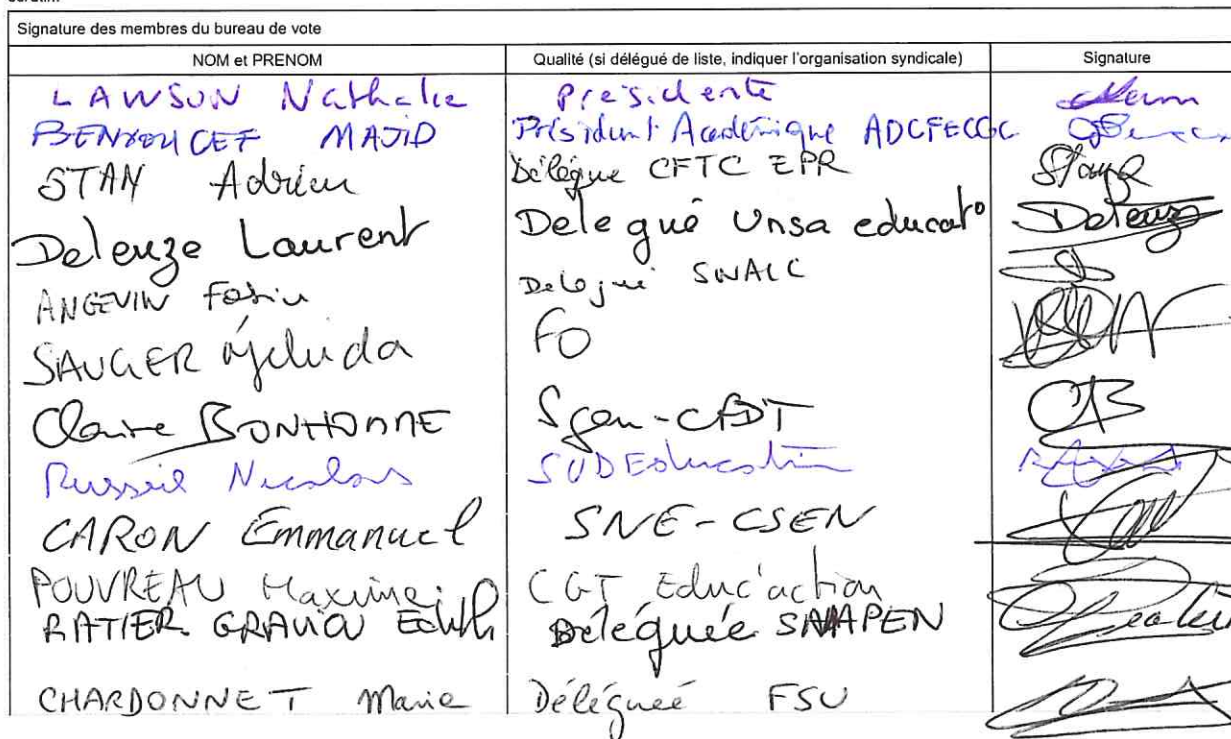 Signature des membres du bureau de vote
NOM et PRENOM Qualité (si délégué de liste, indiquer l'organisation syndicale) Signature
LAWSON Nathalie Présidente
BENYOUCEF MAJID Président Académique
STAN Adrien Délégué CFTC EPR
Deleuze Laurent Delegué Unsa educat° Deleuze
ANGEVIN Délégué SNALC
SAUGER FO
Claire BONHOMME Sgen-CFDT CB
Russeil Nicolas SUD Education
CARON Emmanuel SNE-CSEN
POUVREAU Maxime CGT Educ'action
RATIER Edith Déléguée
CHARDONNET Marie Déléguée FSU